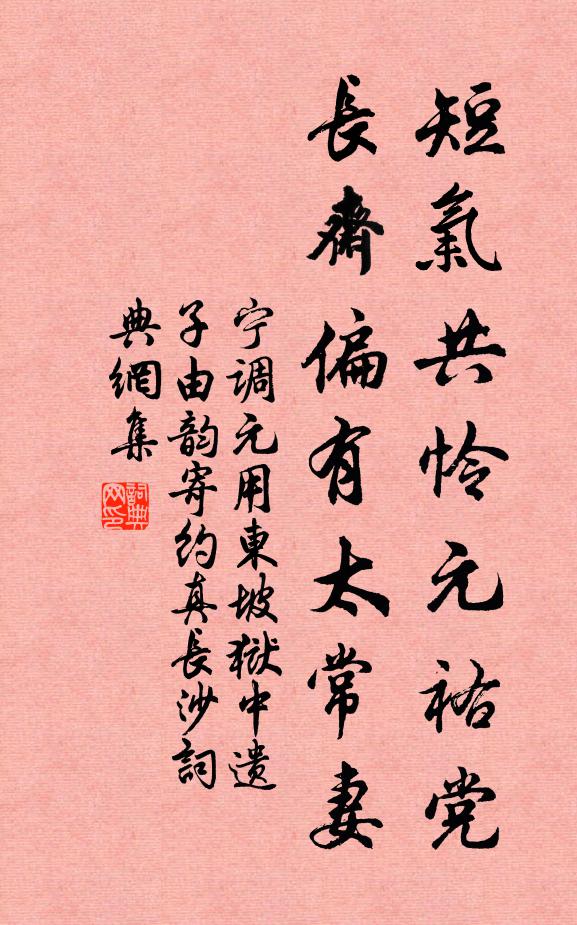 短氣共怜元祐党
長齋偏有太常妻
宁調元用東坡獄中遺
子由韵寄約真長沙詞
典網集
詞典網印